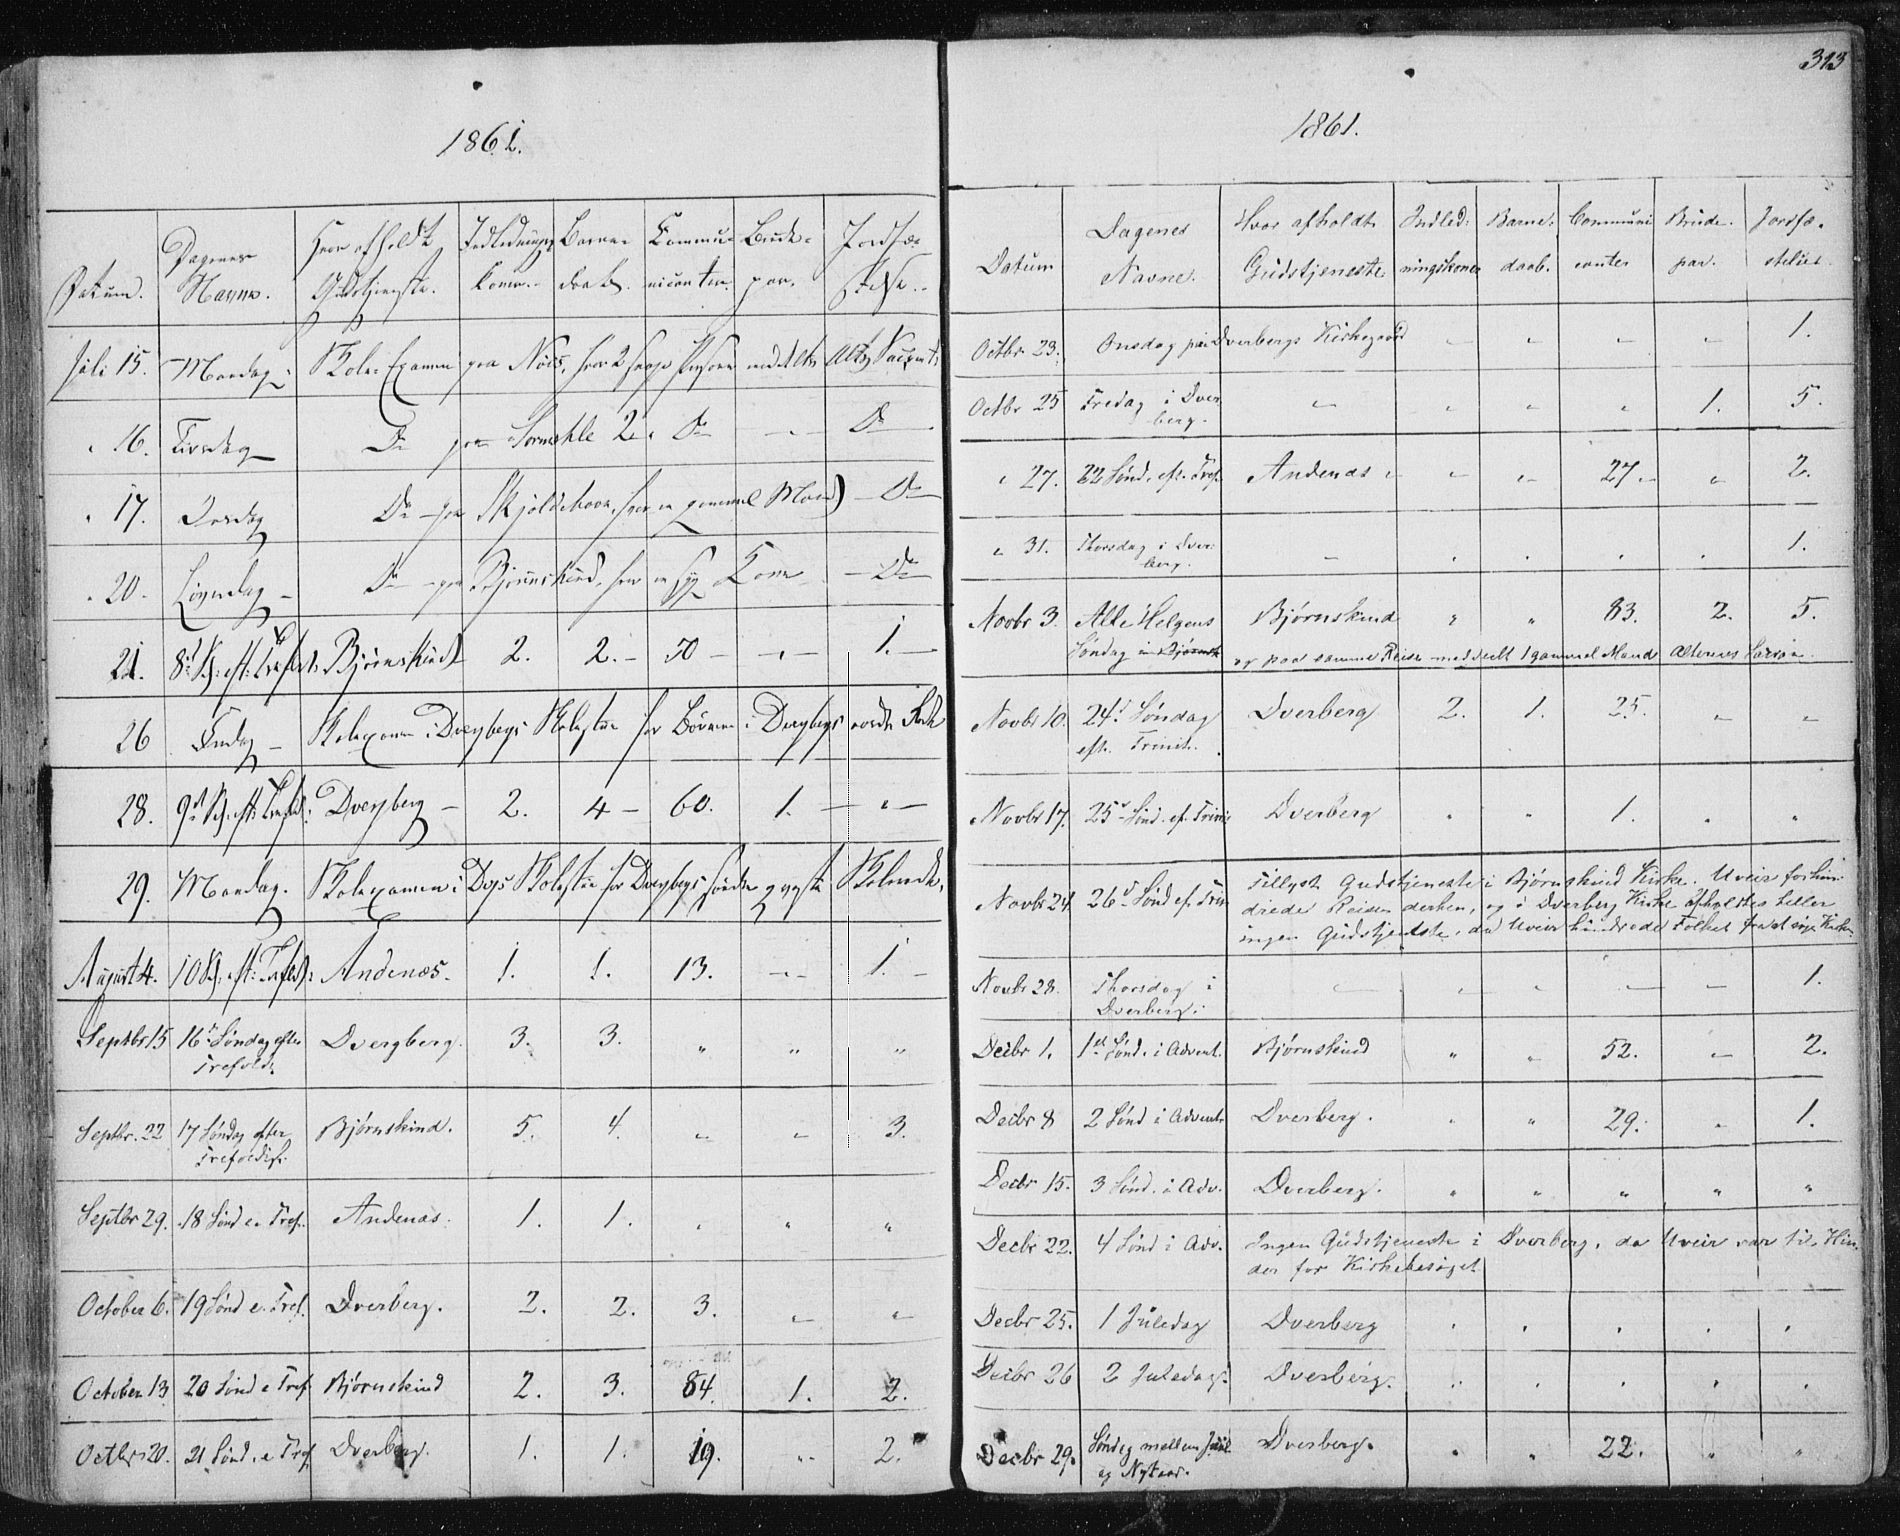 1861.
Datum. Dagenes Navne. Hvor afholdt Gudstjeneste. Indledningskoner. Barnedaab. Communicanter. Brudepar. Jordfæstelse.
Juli 15. Mandag Skole-Examen paa Nöis, hvor 2 svage Personer meddeltes Alts Sacrament
" 16. Tirsdag Do paa 2 Do " Do
" 17. Onsdag Do paa Skjoldehavn, hvor en gammel Mand Do
" 20. Löverdag Do paa Björnskind, hvor en syg Kone Do
21. 8d S. eft: Trefold: Björnskind 2. 2. 50 " 1.
26 Fredag Skolexamen i Dvergbergs Skolestue for Börnene i Dvergbergs nordre
28. 9d S. eft: Trefold: Dvergberg 2. 4 60. 1. "
29. Mandag. Skolexamen i Dvgs Skolestue for Dvergbergs söndre
August 4. 10 S. eft: Trefold: Andenæs. 1. 1. 13. " 1.
Septbr 15 16de Søndag efter Trefold: Dvergberg. 3. 3. " " "
Septbr. 22 17 Søndag efter Trefoldigh. Bjørnskind. 5. 4. " " 3.
Septbr 29. 18 Sønd e. Tref. Andenæs. 1. 1. " " "
October 6. 19 Sønd e. Tref. Dverberg. 2. 2. 3. " "
October 13 20 Sønd e Tref Bjørnskind 2. 3. 84. 1. 2.
Octbr 20. 21 Sønd. e Tref Dverberg. 1. 1. 19. " 2.
313
1861.
Datum Dagenes Navne. Hvor afholdt Gudstjeneste Indledningskoner Barnedaab. Communicanter Brudepar. Jordfæstelser
Octbr 23. Onsdag paa Dverbergs Kirkegaard " " " " 1.
Octbr 25 Fredag i Dverberg. " " " " 1. 5.
" 27. 22 Sønd. eft. Tref. Andenæs " " 27. " 2.
" 31. Thorsdag i Dverberg. " " " " " 1.
Novbr 3. Alle Helgens Søndag Bjørnskind " " 83. 2. 5.
og paa samme Reise meddeelt 1 gammel Mand Altarens Sacra.
Novbr 10. 24d Søndag eft. Trinit. Dverberg 2. 1. 25. " "
Novbr 17. 25d Sønd. ef. Trinit Dverberg " " 1. " "
Novbr 24 26d Sønd ef. Trin Tillyst Gudstjeneste i Bjørnskind Kirke. Uveir forhin-
drede Reisen derhen, og i Dverberg Kirke afholdtes heller
ingen Gudstjeneste, da Uveir hindrede Folket fra at søge Kirken
Novbr 28. Thorsdag i Dverberg. " " " " " 1.
Decbr 1. 1st Sønd. i Advent. Bjørnskind " " 52. " 2.
Decbr 8 2 Sønd i Advent Dverberg. " " 29. " 1.
Decbr 15. 3 Sønd. i Adv. Dverberg. " " " " "
Decbr 22. 4 Sønd i Adv. Ingen Gudstjeneste i Dverberg, da Uveir var til Hin-
der for Kirkebesøget
Decbr 25. 1 Juledag Dverberg " " " " "
Decbr 26 2 Juledag. Dverberg. " " " " "
Decbr 29. Søndag mellem Juul og Nytaar. Dverberg. " " 22. " "